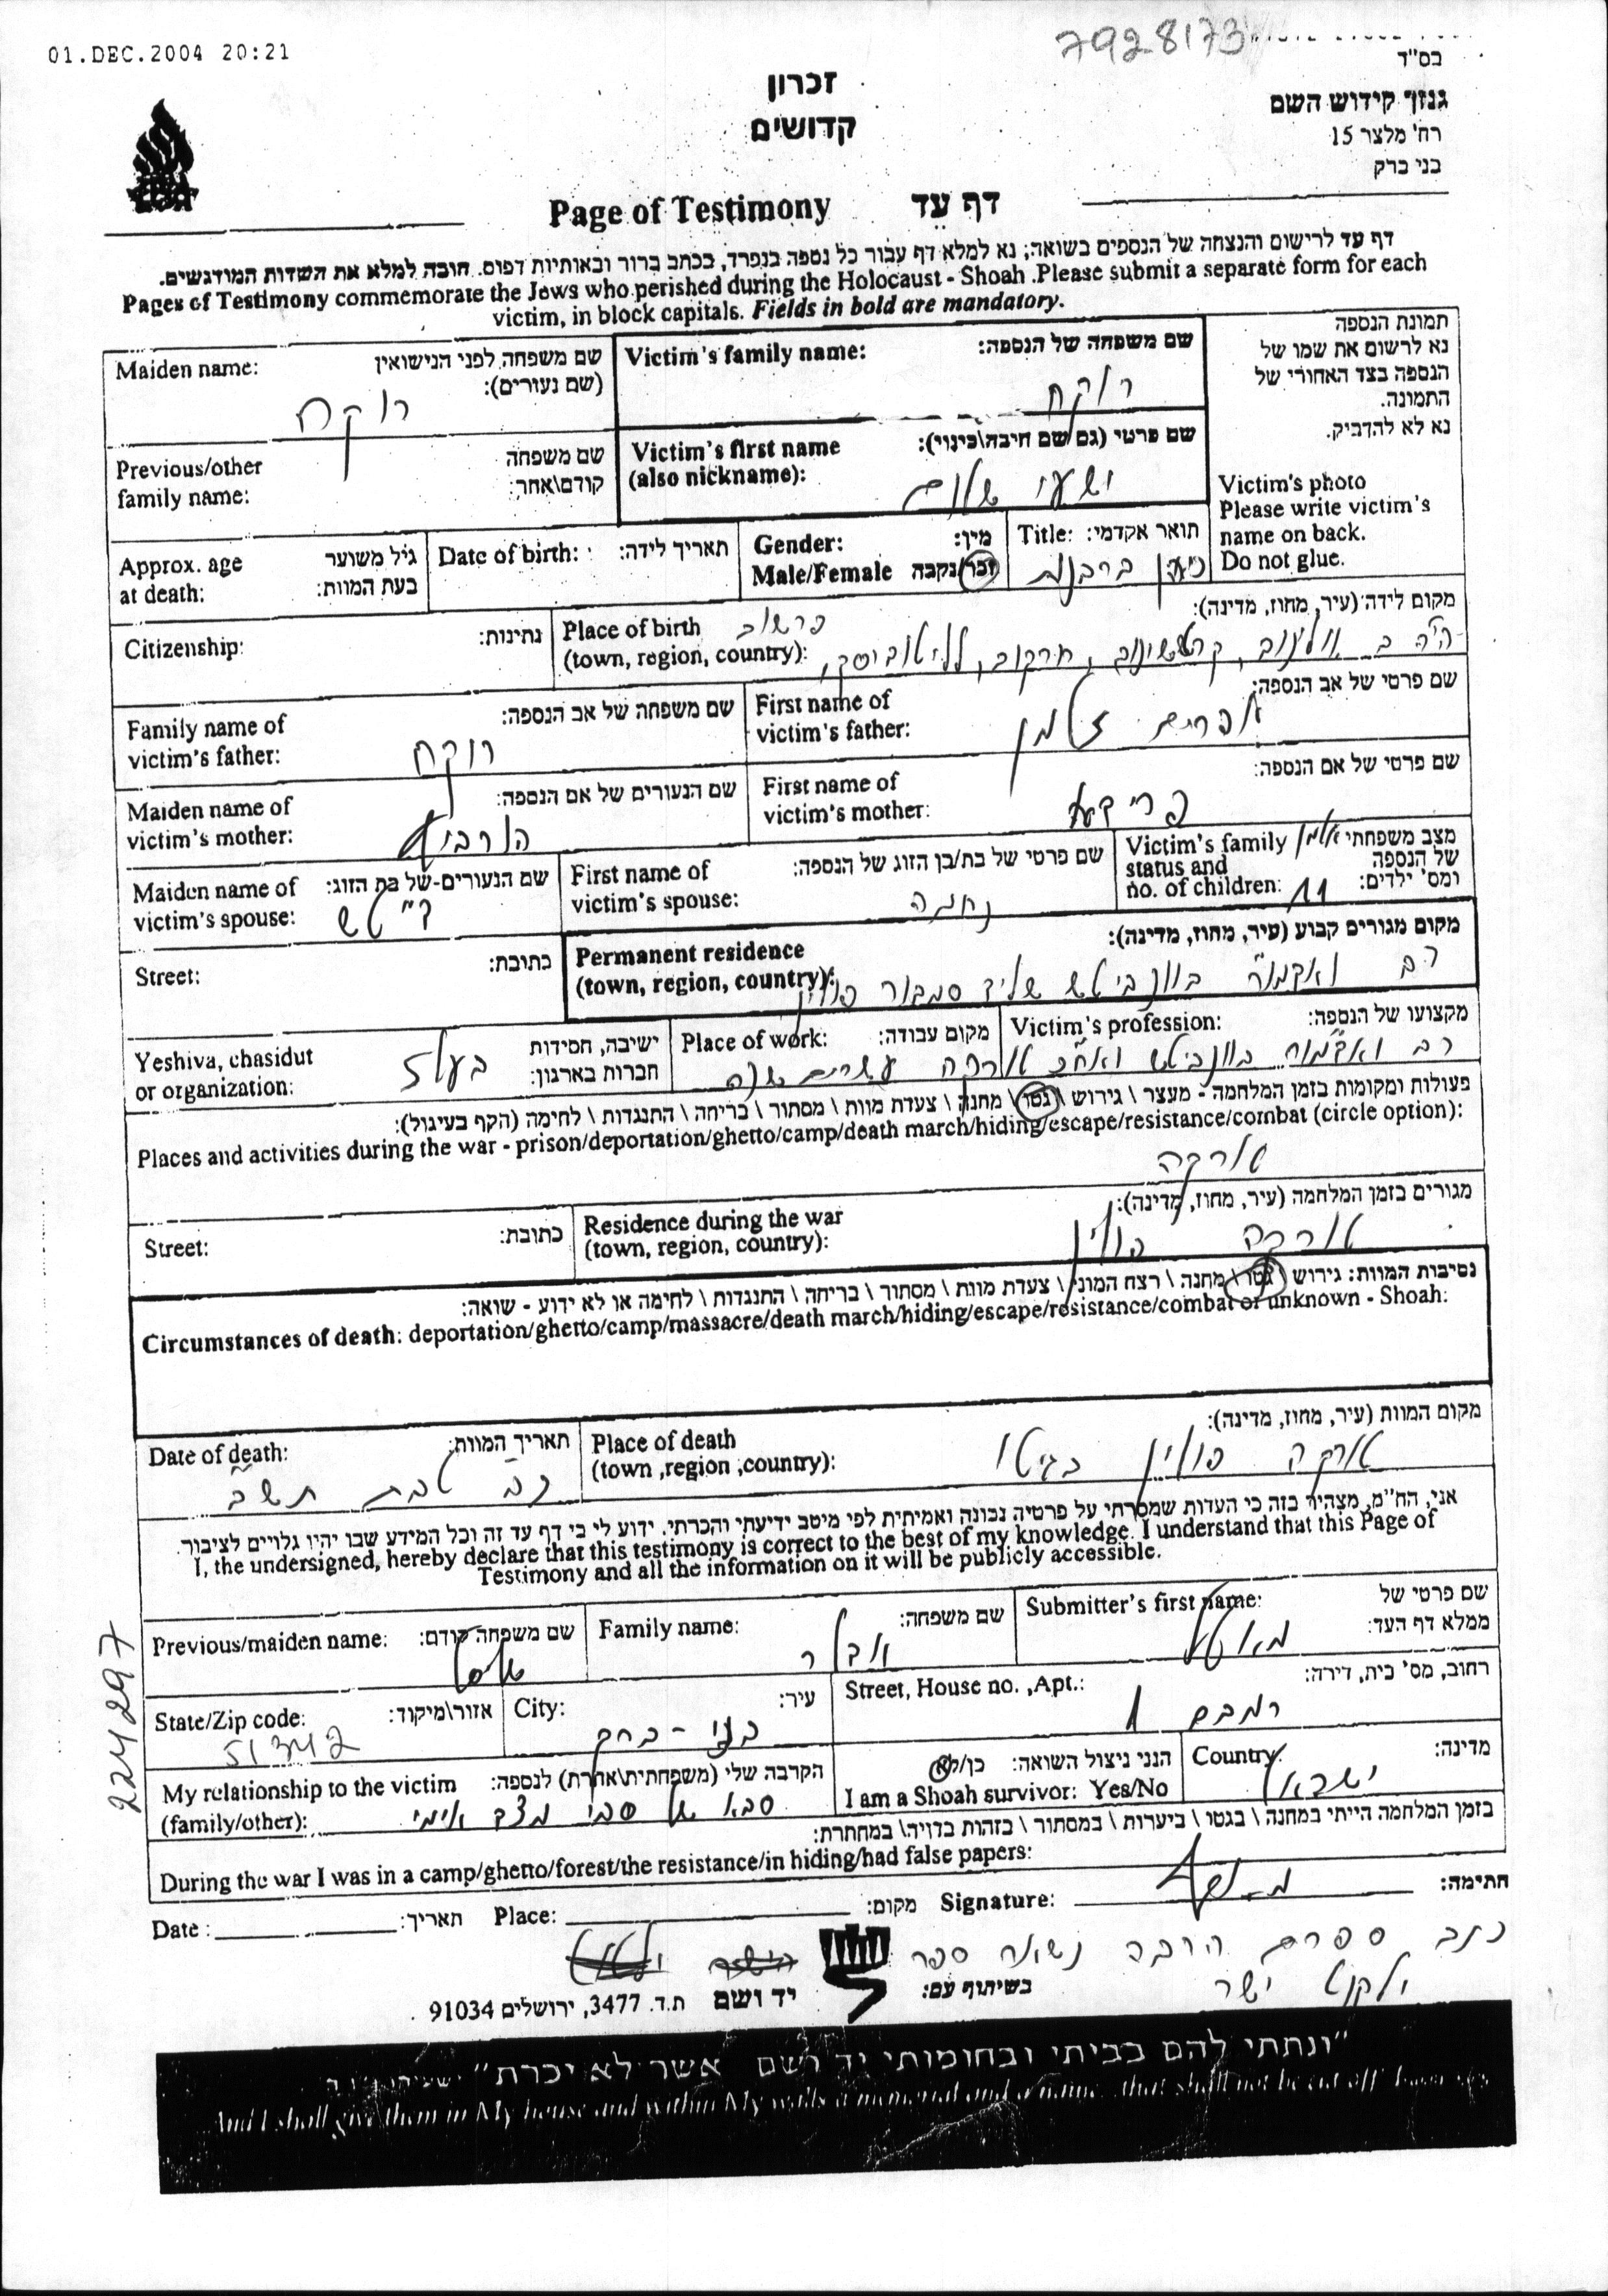 01.DEC.2004 20:21
7928173
בס"ד
זכרון
קדושים
גנזך קידוש השם
רח' מלצר 15
בני ברק
Page of Testimony דף עד
דף עד לרישום והנצחה של הנספים בשואה; נא למלא דף עבור כל נספה בנפרד, בכתב ברור ובאותיות דפוס. חובה למלא את השדות המודגשים.
Pages of Testimony commemorate the Jews who perished during the Holocaust - Shoah .Please submit a separate form for each
victim, in block capitals. Fields in bold are mandatory.
תמונת הנספה
נא לרשום את שמו של
הנספה בצד האחורי של
התמונה.
נא לא להדביק.
Victim's photo
Please write victim's
name on back.
Do not glue.
Victim's family name: שם משפחה של הנספה:
רוקח
Maiden name: שם משפחה לפני הנישואין
(שם נעורים):
רוקח
Victim's first name שם פרטי (גם שם חיבה\כינוי):
(also nickname): ישעי שלום
Previous/other שם משפחה
family name: קודם\אחר:
Title: תואר אקדמי:
ברבנות
Gender: מין:
Male/Female זכר/נקבה
Date of birth: תאריך לידה:
Approx. age גיל משוער
at death: בעת המוות:
מקום לידה (עיר, מחוז, מדינה):
Place of birth
(town, region, country):
Citizenship: נתינות:
שם פרטי של אב הנספה:
First name of
victim's father: אפרים זלמן
Family name of שם משפחה של אב הנספה:
victim's father: רוקח
שם פרטי של אם הנספה:
First name of
victim's mother: פריידע
Maiden name of שם הנעורים של אם הנספה:
victim's mother:
Victim's family מצב משפחתי אלמן
status and של הנספה
no. of children: 11 ומס' ילדים:
First name of שם פרטי של בת/בן הזוג של הנספה:
victim's spouse: נחמה
Maiden name of שם הנעורים-של בת הזוג:
victim's spouse:
Permanent residence מקום מגורים קבוע (עיר, מחוז, מדינה):
(town, region, country): רב ואדמו"ר בוונביטש שליד סמבור פולין
Street: כתובת:
Victim's profession: מקצועו של הנספה:
Place of work: מקום עבודה:
רב ואדמור בוונביטש ואח"כ טורקה עשרים שנה
Yeshiva, chasidut ישיבה, חסידות
or organization: חברות בארגון:
בעלז
פעולות ומקומות בזמן המלחמה - מעצר \ גירוש \ גטו \ מחנה \ צעדת מוות \ מסתור \ בריחה \ התנגדות \ לחימה (הקף בעיגול):
Places and activities during the war - prison/deportation/ghetto/camp/death march/hiding/escape/resistance/combat (circle option):
טורקה
מגורים בזמן המלחמה (עיר, מחוז, מדינה):
Residence during the war
(town, region, country): טורקה פולין
Street: כתובת:
נסיבות המוות: גירוש \ גטו \ מחנה \ רצח המוני \ צעדת מוות \ מסתור \ בריחה \ התנגדות \ לחימה או לא ידוע - שואה:
Circumstances of death: deportation/ghetto/camp/massacre/death march/hiding/escape/resistance/combat or unknown - Shoah:
מקום המוות (עיר, מחוז, מדינה):
Place of death
(town ,region ,country): טורקה פולין בגיטו
Date of death: תאריך המוות:
כב טבת תש"ב
אני, הח"מ, מצהיר בזה כי העדות שמסרתי על פרטיה נכונה ואמיתית לפי מיטב ידיעתי והכרתי. ידוע לי כי דף עד זה וכל המידע שבו יהיו גלויים לציבור.
I, the undersigned, hereby declare that this testimony is correct to the best of my knowledge. I understand that this Page of
Testimony and all the information on it will be publicly accessible.
Submitter's first name: שם פרטי של
ממלא דף העד:
Family name: שם משפחה:
Previous/maiden name: שם משפחה קודם:
Street, House no. ,Apt.: רחוב, מס' כית, דירה:
רמבם 1
City: עיר:
בני-ברק
State/Zip code: אזור\מיקוד:
Country: מדינה:
ישראל
הנני ניצול השואה: כן/לא
I am a Shoah survivor: Yes/No
My relationship to the victim הקרבה שלי (משפחתית\אחרת) לנספה:
(family/other): סבא של סבי מצד אימי
בזמן המלחמה הייתי במחנה \ בגטו \ ביערות \ במסתור \ בזהות בדויה\ במחתרת:
During the war I was in a camp/ghetto/forest/the resistance/in hiding/had false papers:
Date : תאריך: Place: מקום: Signature: חתימה:
כתב ספרים הרבה נשאר ספר
ילקוט ישר
בשיתוף עם:
יד ושם ת.ד. 3477, ירושלים 91034
"ונתתי להם בביתי ובחומותי יד ושם אשר לא יכרת"
And I shall give them in My house and within My walls a memorial and a name that shall not be cut off
224297